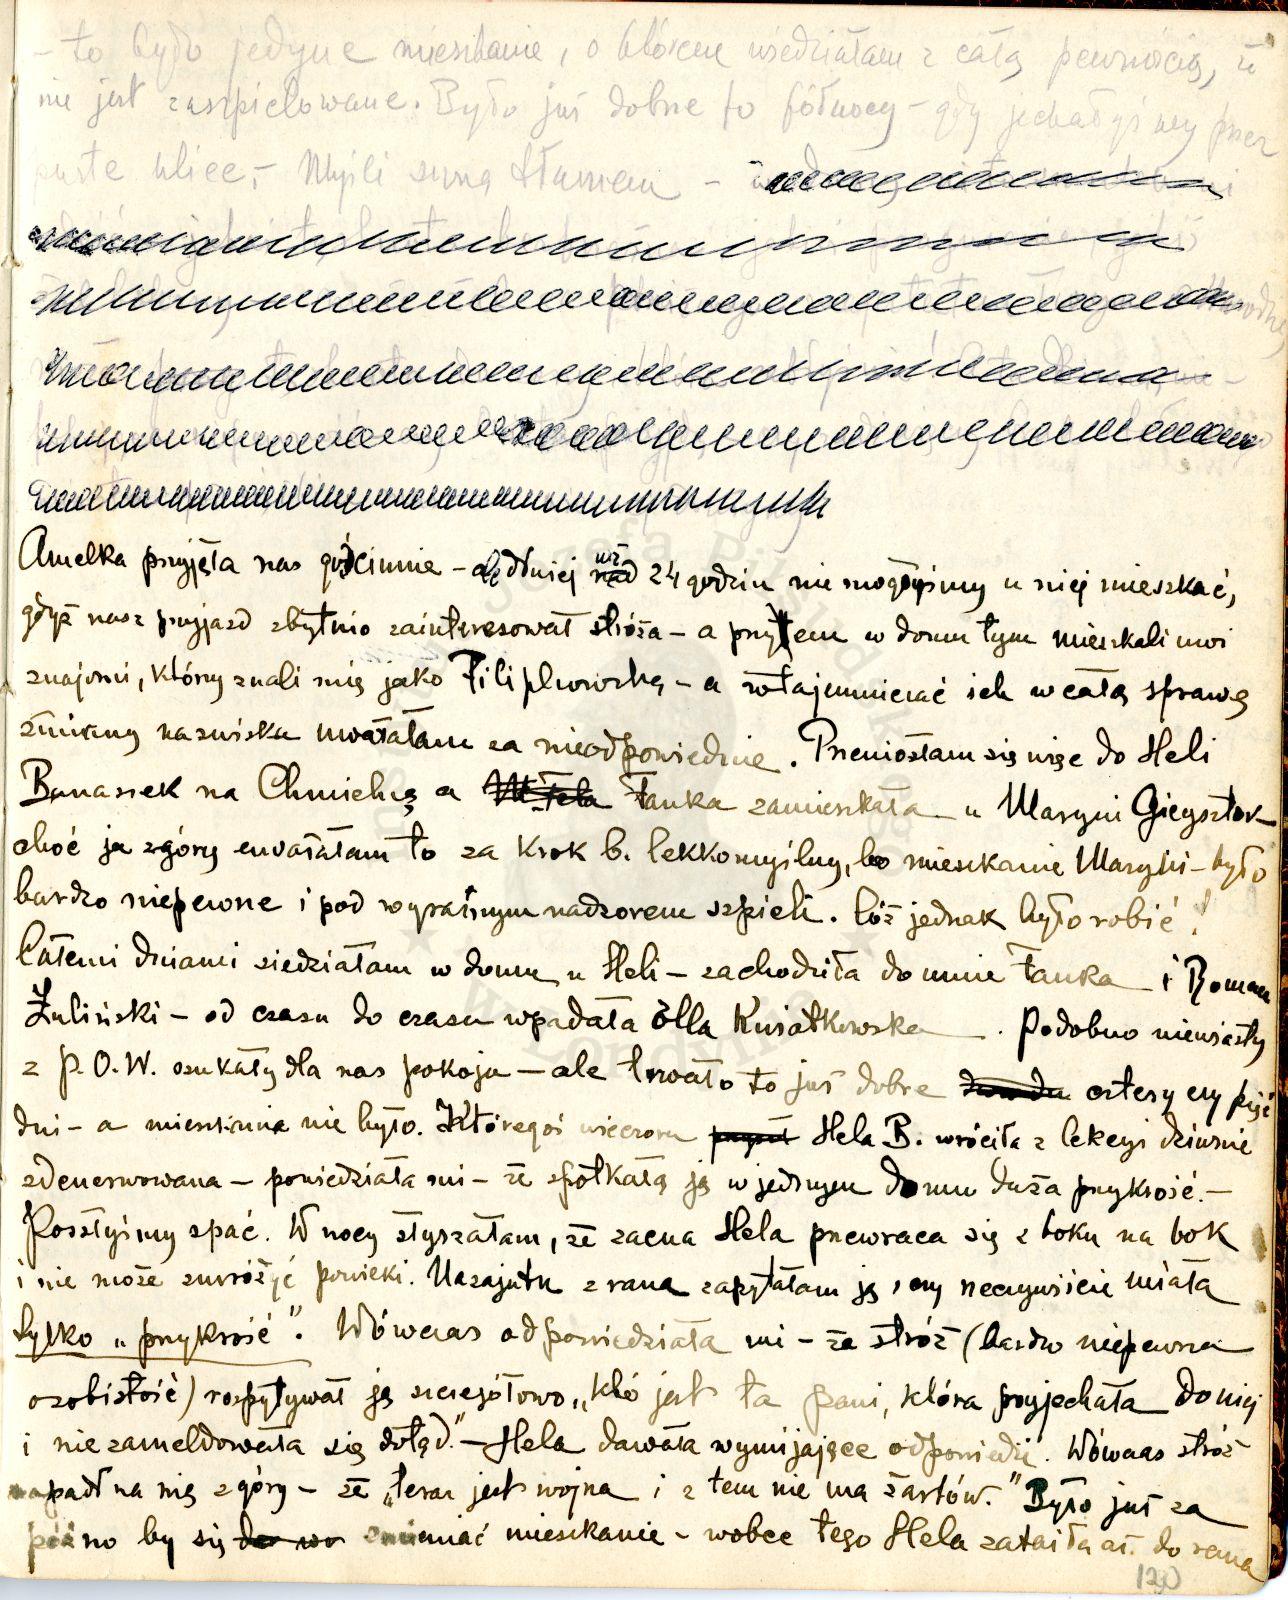 – to było jedyne mieszkanie, o którem wiedziałam z całą pewnością, że
nie jest zaszpiclowane. Było już dobrze po północy – gdy jechałyśmy przez
puste ulice, –
Amelka przyjęła nas gościnnie – ale dłużej niż 24 godzin nie mogłyśmy u niej mieszkać,
gdyż nasz przyjazd zbytnio zainteresował stróża – a przytem w domu tym mieszkali moi
znajomi, którzy znali mię jako – a wtajemniczać ich w całą sprawę
zmiany nazwiska uważałam za nieodpowiednie. Przeniosłam się więc do Heli
Banaszek na Chmielną a Hanka zamieszkała u Maryni Giegsztor –
choć ja zgóry uważałam to za krok b. lekkomyślny, bo mieszkanie Maryni – było
bardzo niepewne i pod wyraźnym nadzorem szpicli. Cóż jednak było robić!
Całemi dniami siedziałam w domu u Heli – zachodziła do mnie Hanka i Roman
Żuliński – od czasu do czasu wpadała Olla Kwiatkowska. Podobno niewiasty
z P.O.W. szukały dla nas pokoju – ale trwało to już dobre cztery czy pięć
dni – a mieszkania nie było. Któregoś wieczoru Hela B. wróciła z lekcyi dziwnie
zdenerwowana – powiedziała mi – że spotkała ją w jednym domu duża przykrość. –
Poszłyśmy spać. W nocy słyszałam, że zacna Hela przewraca się z boku na bok
i nie może zmrużyć powieki. Nazajutrz z rana zapytałam ją, czy rzeczywiście miała
tylko „przykrość". Wówczas odpowiedziała mi – że stróż (bardzo niepewna
osobistość) rozpytywał ją szczegółowo „kto jest ta pani, która przyjechała do niej
i nie zameldowała się dotąd." – Hela dawała wymijające odpowiedzi. Wówczas stróż
napadł na nią zgóry – że „teraz jest wojna i z tem nie ma żartów." Było już za
późno by się zmieniać mieszkanie – wobec tego Hela zataiła aż do rana
120